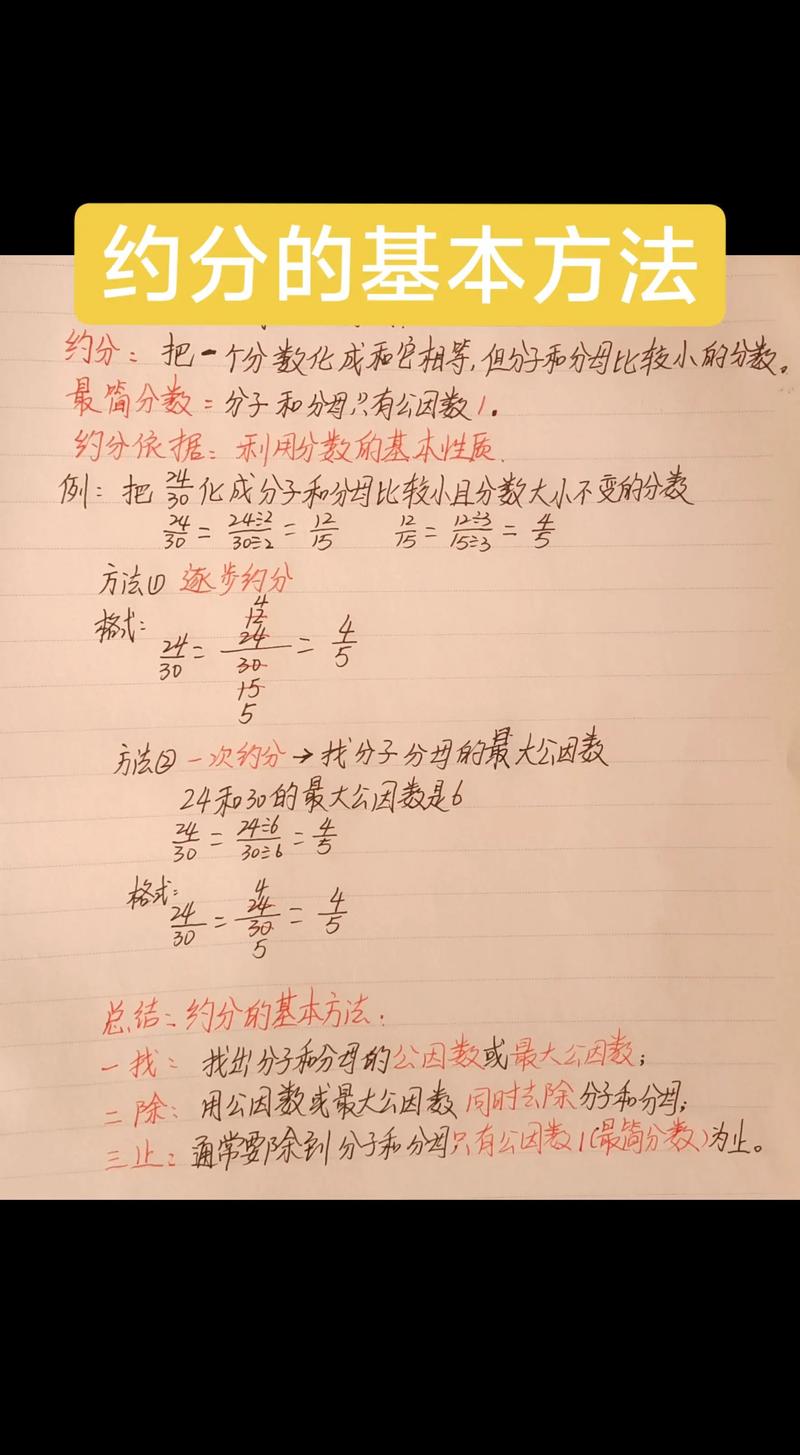 约分的基本方法
约分：把一个分数化成和它相等,但分子和分母比较小的分数。
最简分数：分子和分母只有公因数1。
约分依据：利用分数的基本性质.
例：把 24/30 化成分子和分母比较小且分数大小不变的分数
24/30 = 24÷2/30÷2 = 12/15 12/15 = 12÷3/15÷3 = 4/5
方法① 逐步约分
格式：
4
12
24/30 = 24/30 = 4/5
15
5
方法② 一次约分→找分子分母的最大公因数
24和30的最大公因数是6
24/30 = 24÷6/30÷6 = 4/5
格式：
4
24/30 = 24/30 = 4/5
5
总结：约分的基本方法：
一找：找出分子和分母的公因数或最大公因数；
二除：用公因数或最大公因数同时去除分子和分母；
三止：通常要除到分子和分母只有公因数1(最简分数)为止。